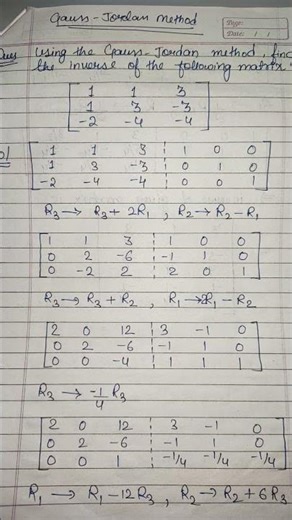 Gauss-Jordan Method
Page:
Date: / /
Ques Using the Gauss-Jordan method, find
the inverse of the following matrix
1 1 3
1 3 -3
-2 -4 -4
Sol
1 1 3 1 0 0
1 3 -3 0 1 0
-2 -4 -4 0 0 1
R3 → R3 + 2R1 , R2 → R2 - R1
1 1 3 1 0 0
0 2 -6 -1 1 0
0 -2 2 2 0 1
R3 → R3 + R2 , R1 → 2R1 - R2
2 0 12 3 -1 0
0 2 -6 -1 1 0
0 0 -4 1 1 1
R3 → -1/4 R3
2 0 12 3 -1 0
0 2 -6 -1 1 0
0 0 1 -1/4 -1/4 -1/4
R1 → R1 - 12R3 , R2 → R2 + 6R3